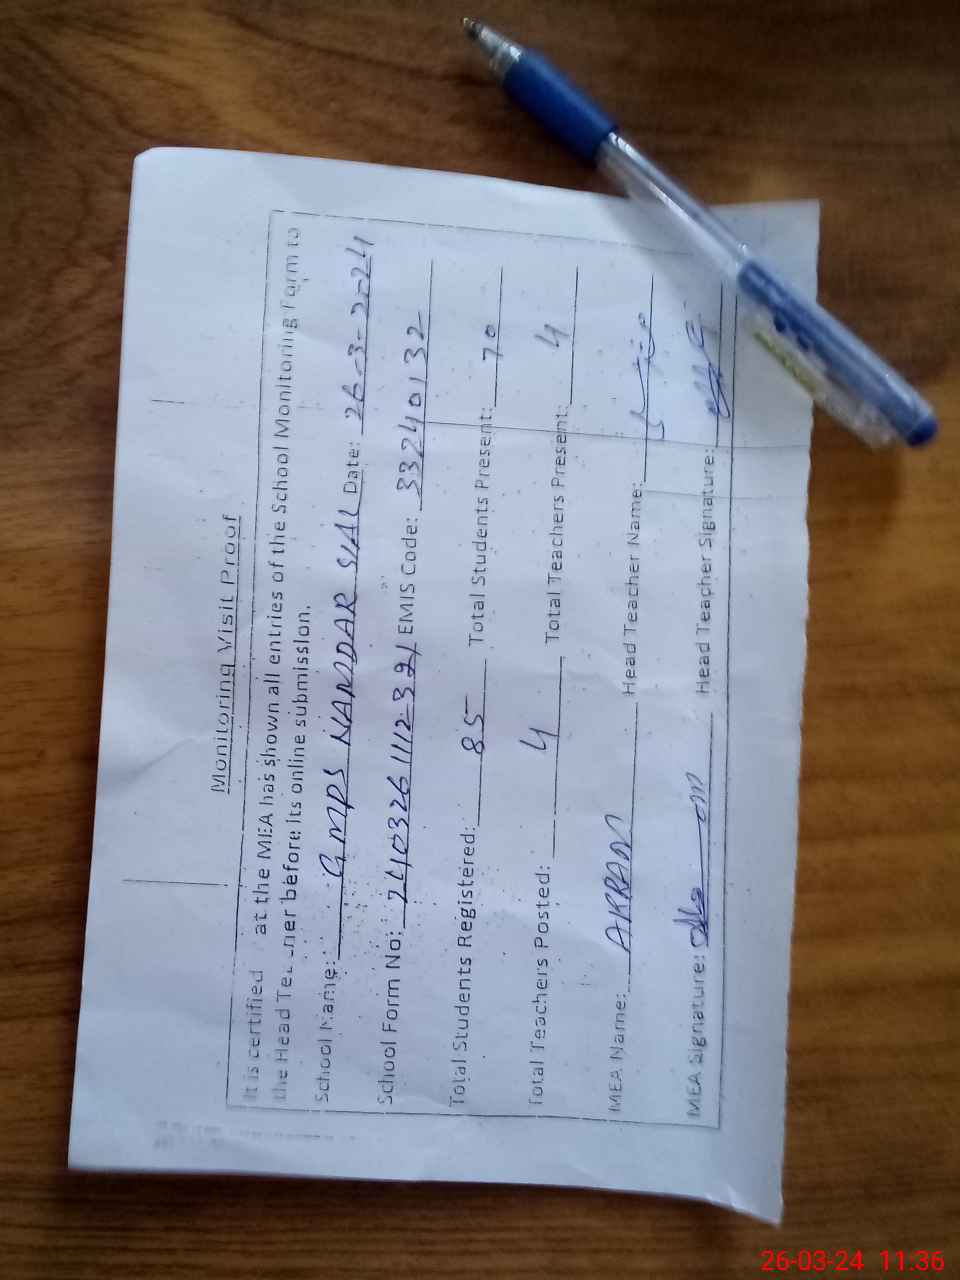 Monitoring Visit Proof
It is certified at the MEA has shown all entries of the School Monitoring Form to
the Head Teacher before its online submission.
School Name: GMPS NANDAR SIAL Date: 26-3-2024
School Form No: 240326111232 EMIS Code: 33240132
Total Students Registered: 85 Total Students Present: 70
Total Teachers Posted: 4 Total Teachers Present: 4
MEA Name: AKRAM Head Teacher Name:
MEA Signature: Head Teacher Signature:
26-03-24 11:36